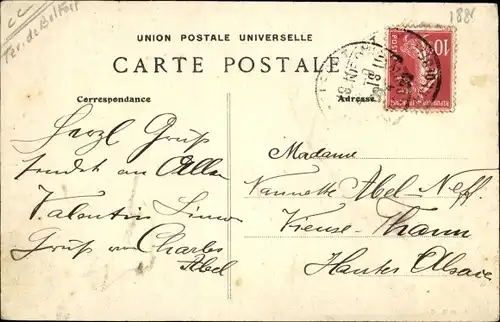 Ter. de Belfort
1881
UNION POSTALE UNIVERSELLE
CARTE POSTALE
Correspondance
Adresse
10
Herzl Gruß
sendet an Alle
Valentin
Gruß von Charles
Abel
Madame
Nannette Abel-Neff
Vieux-Thann
Hautes Alsace